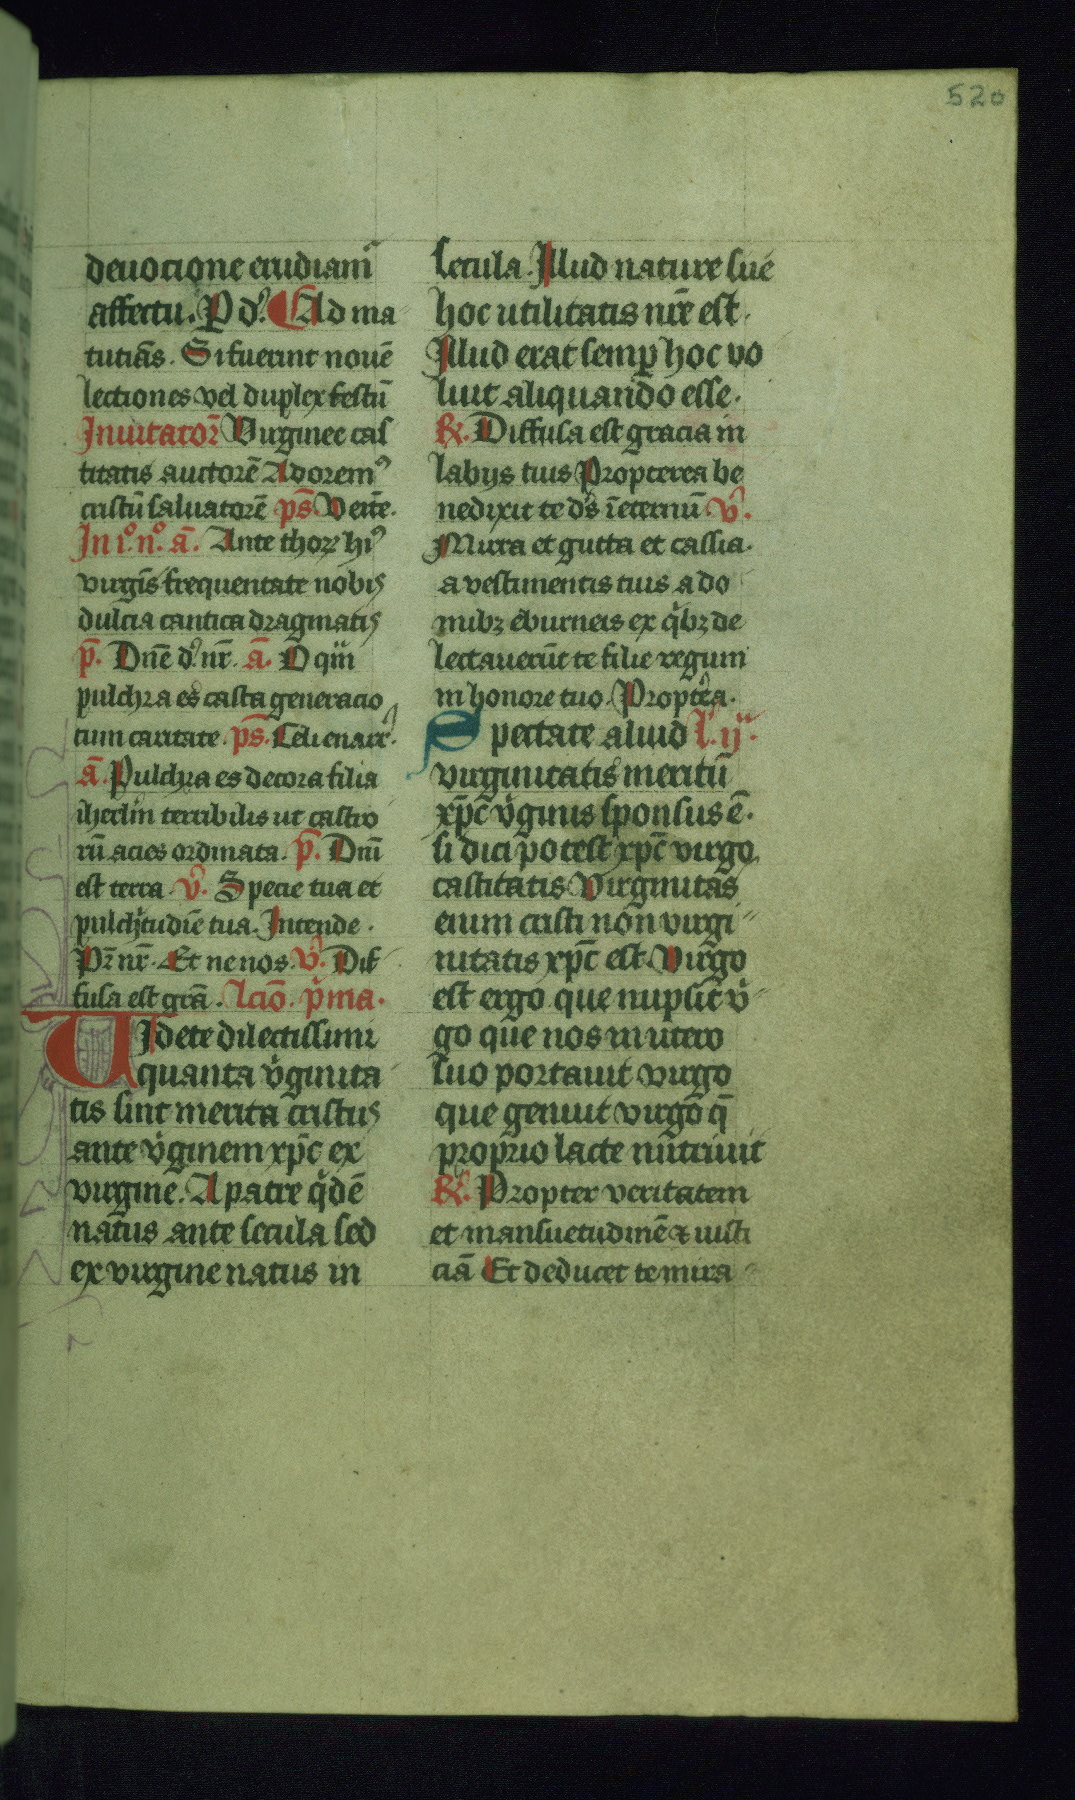 520
deuocione erudiam̄
affectu. P d᷒. Ad ma
tutīas. Si fuerint nouē
lectiones vel duplex festū
Inuitator̄ Virginee cas
titatis auctorē Adorem᷒
cristū saluatorē ps̄. Venite.
In i᷒. n᷒. ā. Ante thoꝝ hi᷒
virgīs frequentate nobis
dulcia cantica dragmatis
p̄. Dn̄e d᷒ nr̄. ā. O qm̄
pulchra es casta generacio
cum caritate. ps̄. Celi enarr᷒.
ā. Pulchra es decora filia
iherlm̄ terribilis ut castro
rū acies ordinata. p̄. Dn̄i
est terra. v̄. Specie tua et
pulchͥtudīe tua. Intende.
Pr̄ nr̄. Et ne nos. v̄. Dif
fusa est grā. Lcīo. pͥma.
Videte dilectissimi
quanta vͥginita
tis sint merita cristus
ante vͥginem xp̄c ex
virgine. A patre qͥdē
natus ante secula sed
ex virgine natus in
secula. Illud nature sue
hoc utilitatis nr̄e est.
Illud erat semꝑ hoc vo
luit aliquando esse.
R̄. Diffusa est gracia in
labijs tuis Propterea be
nedixit te ds̄ īeternū v̄.
Mirra et gutta et cassia.
a vestimentis tuis a do
mibꝫ eburneis ex qͥbꝫ de
lectauerūt te filie regum
in honore tuo. Propt̄ea.
Spectate aliud l. ij.
virginitatis meritū
xp̄c vͥginis sponsus ē.
si dici potest xp̄c virgo
castitatis Virginitas
enim cristi non virgi
nitatis xp̄c est. Virgo
est ergo que nupsit vͥ
go que nos in utero
suo portauit virgo
que genuit virgo q̄
proprio lacte nutriuit
R̄. Propter veritatem
et mansuetudinē ⁊ iusti
ciā Et deducet te mira